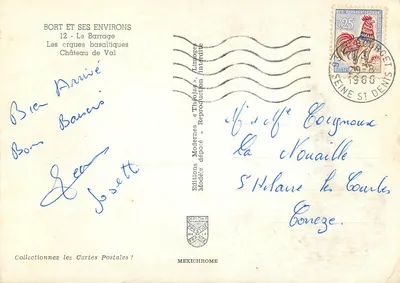 BORT ET SES ENVIRONS
12 - Le Barrage
Les orgues basaltiques
Château de Val
Bien Arrivé
Bons Baisers
Jean
Josett
Collectionnez les Cartes Postales !
Editions Modernes « Théojac » Limoges
Modèle déposé - Reproduction interdite
MEXICHROME
0,25
1966
SEINE ST DENIS
M et Mme
La Nouaille
St Hilaire les Courbes
Correze.